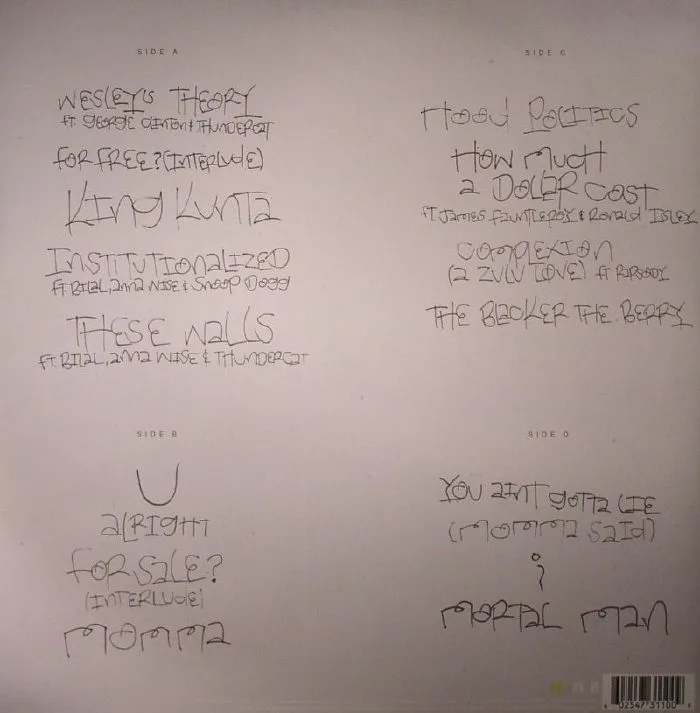 SIDE A
WESLEY'S THEORY
ft GEORGE CLINTON & THUNDERCAT
FOR FREE? (INTERLUDE)
KING KUNTA
INSTITUTIONALIZED
ft BILAL, anna WISE & SNOOP DOGG
THESE WALLS
ft. BILAL, anna WISE & THUNDERCAT
SIDE B
U
aLRIGHT
FOR SALE?
(INTERLUDE)
MOMMA
SIDE C
HOOD POLITICS
HOW MUCH
a DOLLAR COST
ft. JAMES FAUNTLEROY & RONALD ISLEY
COMPLEXION
(a ZULU LOVE) ft RAPSODY
THE BLACKER THE BERRY
SIDE D
YOU aINT GOTTA LIE
(MOMMA SAID)
i
MORTAL MAN
02547 31100